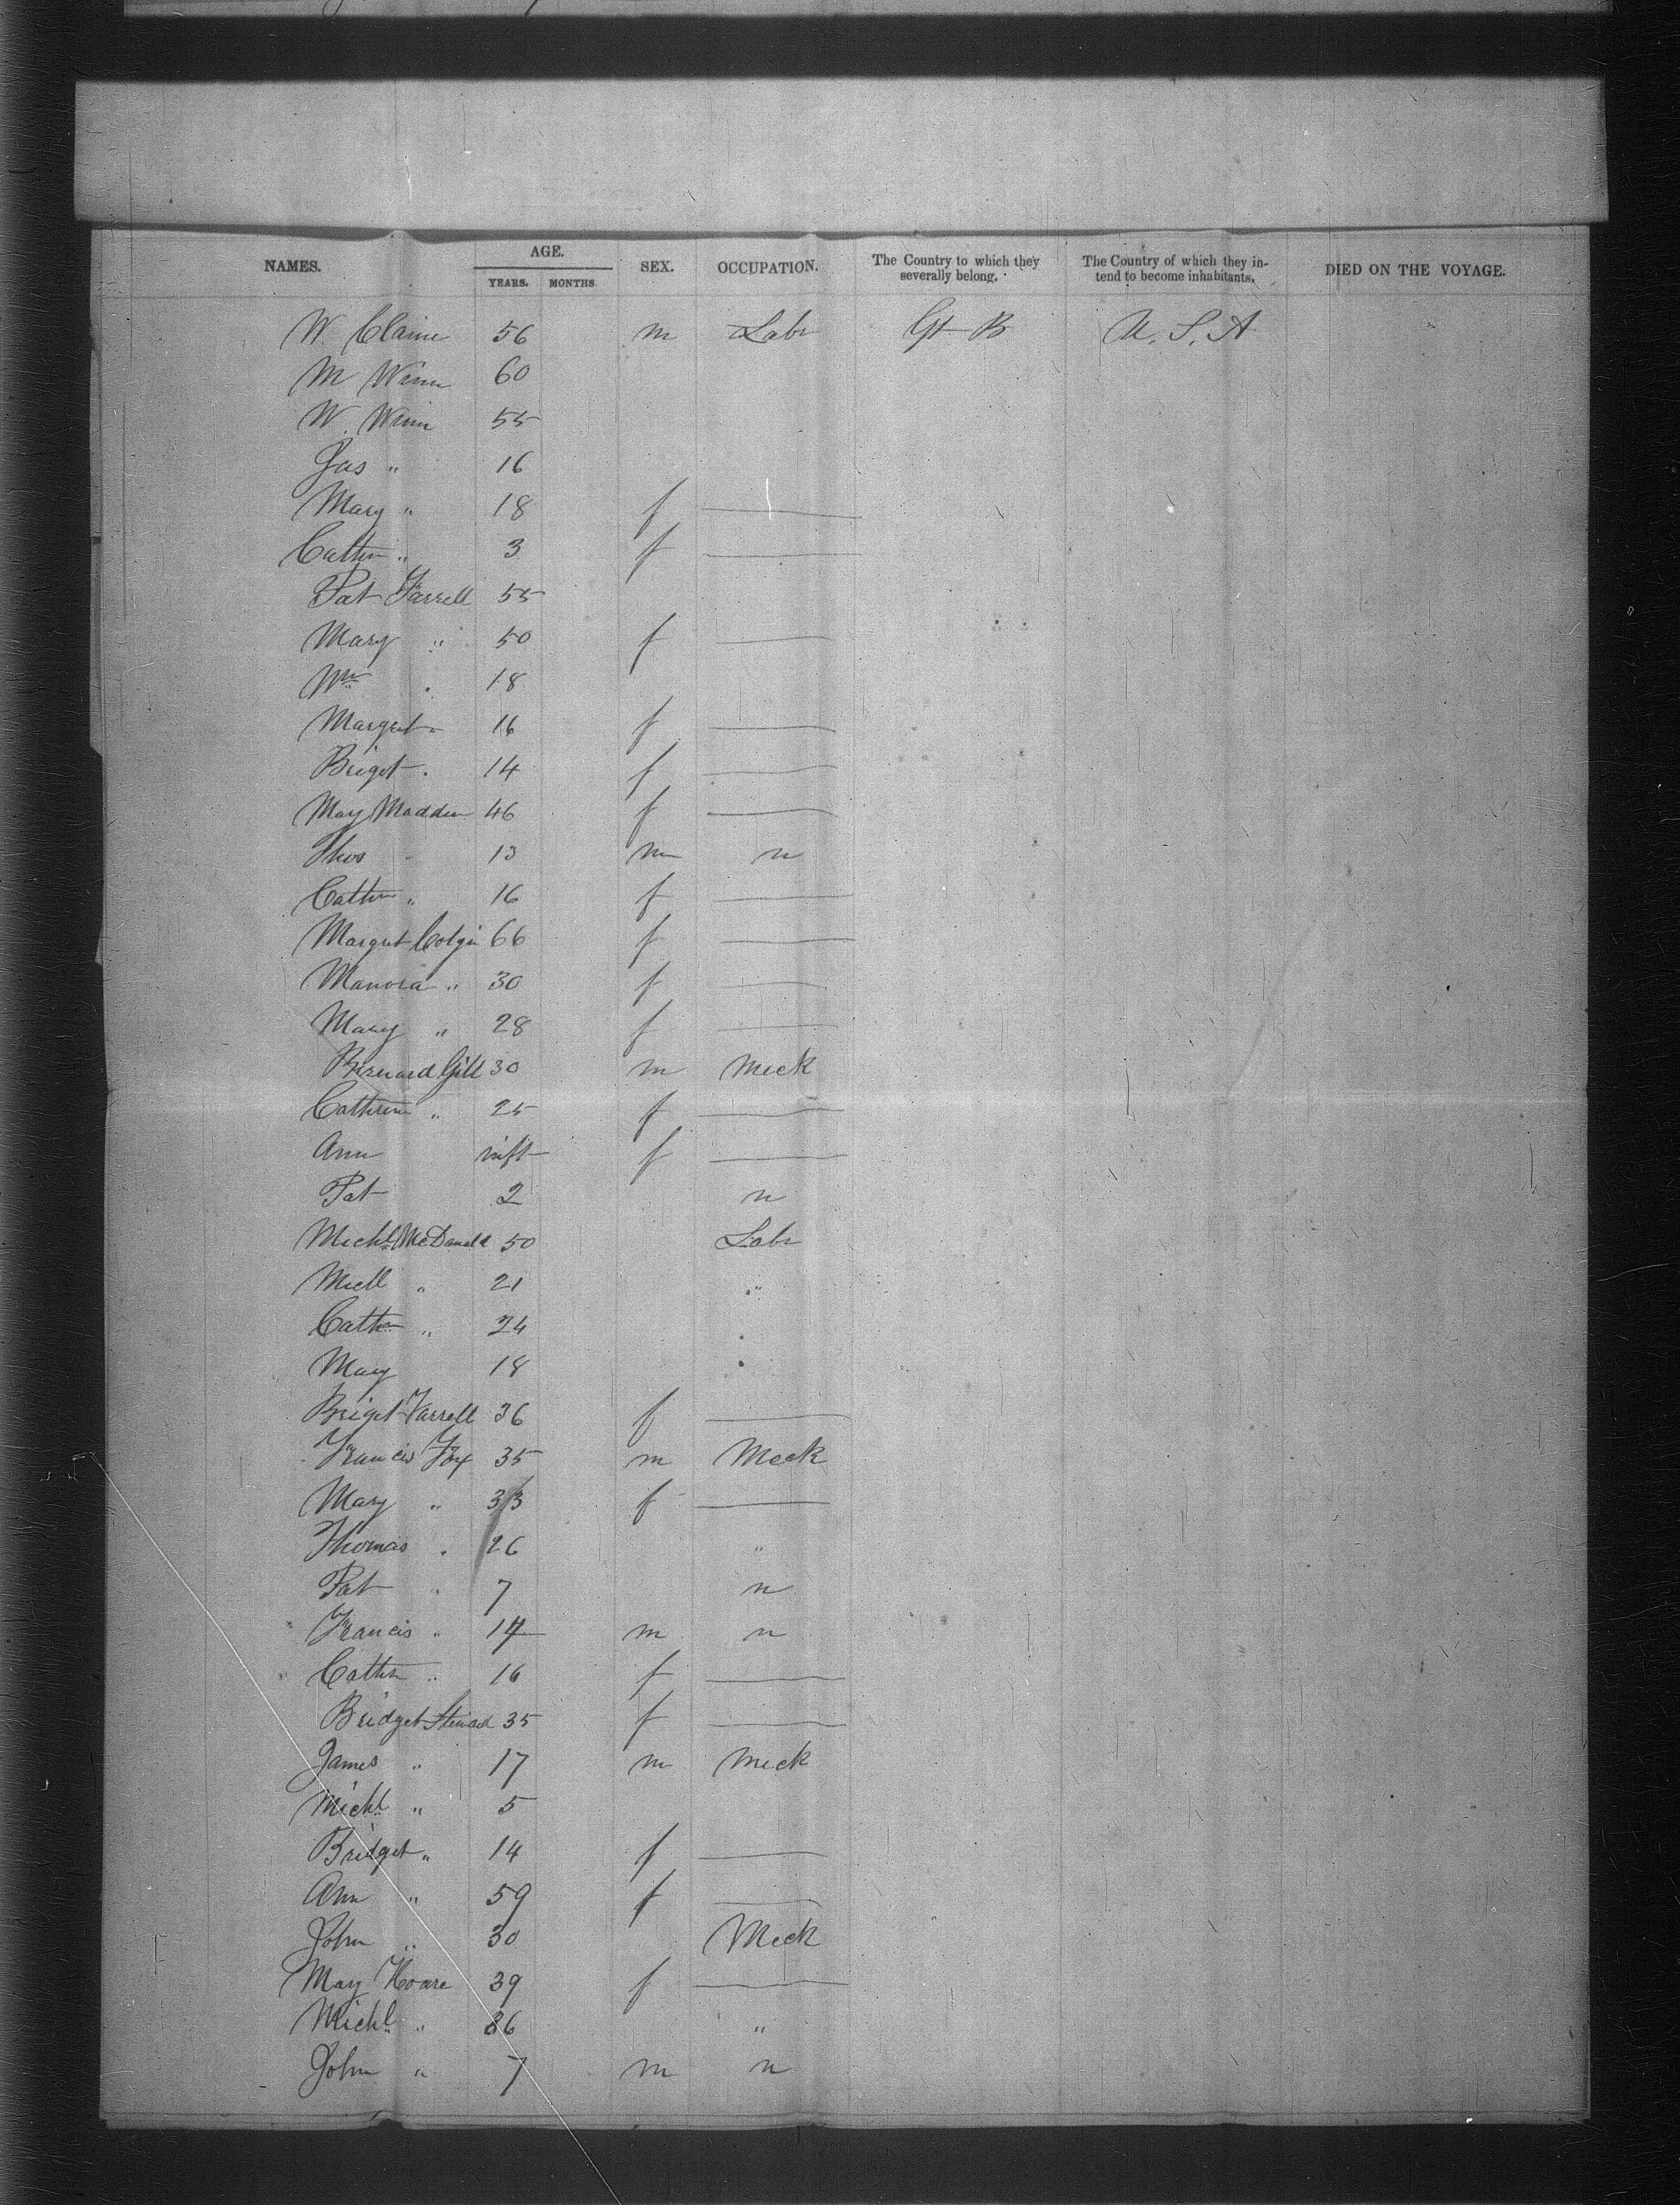 NAMES. AGE. SEX. OCCUPATION. The Country to which they severally belong. The Country of which they intend to become inhabitants. DIED ON THE VOYAGE.
YEARS. MONTHS
W. Claine 56 m Labr Gt B U. S. A
M Winn 60
W. Winn 55
Jas " 16
Mary " 18 f
Cathn " 3 f
Pat Farrell 55
Mary " 50 f
Wm " 18
Margret " 16 f
Briget " 14 f
May Madden 46 f
Thos " 13 m n
Cathn " 16 f
Margret Colgin 66 f
Manora " 30 f
Mary " 28 f
Bernard Gill 30 m Meck
Cathrin " 25 f
Ann inft f
Pat 2 n
Michl McDanald 50 Labr
Michl " 21 "
Cathn " 24 "
Mary 18 "
Briget Farrell 36 f
Francis Fox 35 m Meck
Mary " 33 f
Thomas " 26 "
Pat " 7 n
Francis " 14 m n
Cathn " 16 f
Bridget Steward 35 f
James " 17 m Meck
Michl " 5
Bridget " 14 f
Ann " 59 f
John " 30 Meck
May Hoare 39 f
Michl " 36 "
John " 7 m n